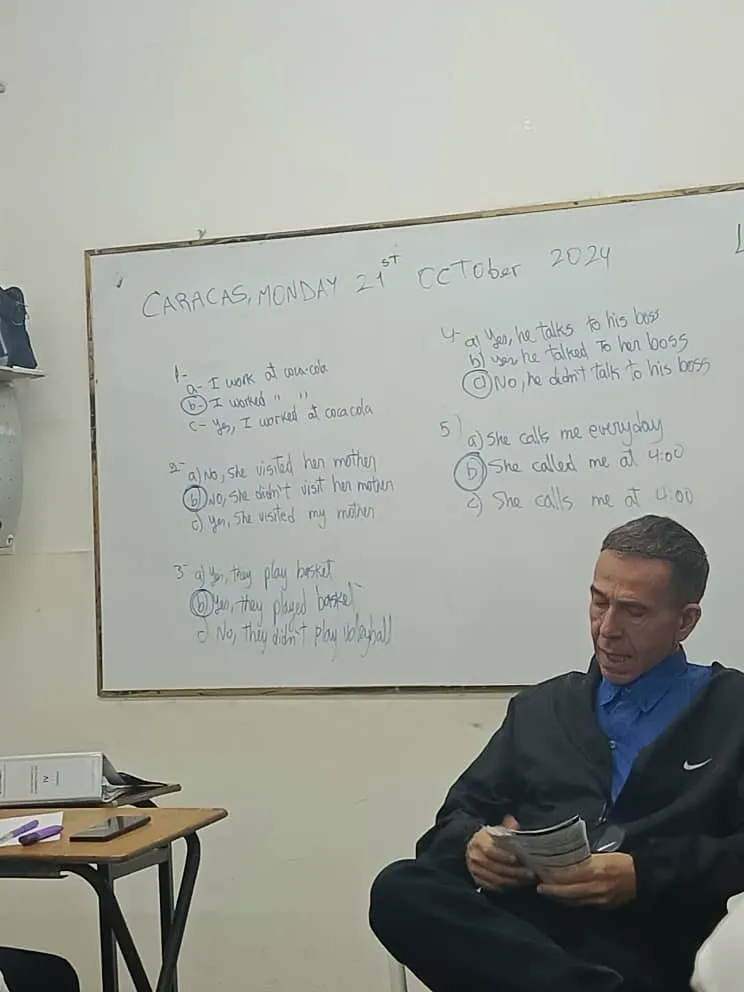 CARACAS, MONDAY 21ST OCTober 2024
1-
a- I work at coca-cola
b- I worked " "
c- Yes, I worked at coca cola
2- a) No, she visited her mother
b) No, she didn't visit her mother
c) Yes, she visited my mother
3- a) Yes, they play basket
b) Yes, they played basket
c) No, they didn't play voleyball
4- a) Yes, he talks to his boss
b) Yes, he talked To her boss
c) No, he didn't talk to his boss
5) a) She calls me everyday
b) She called me at 4:00
c) She calls me at 4:00
IV